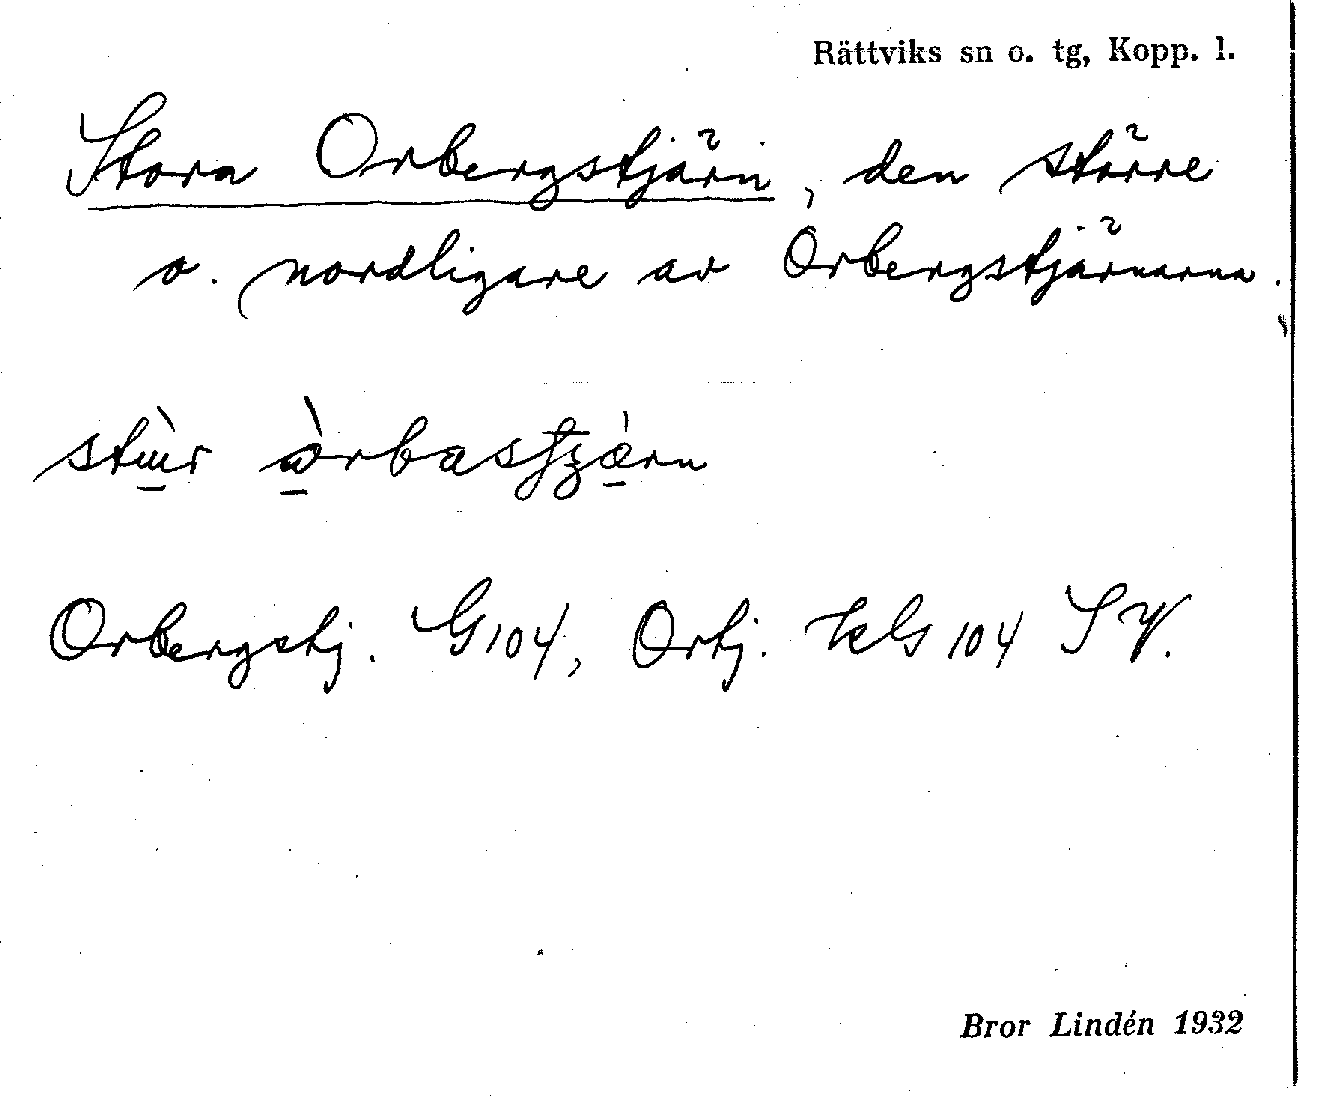 Rättviks sn o. tg, Kopp. l.
Stora Orbergstjärn, den större
o. nordligare av Orbergstjärnarna.
Orbergstj. G104, Ortj. kG 104 SV.
Bror Lindén 1932